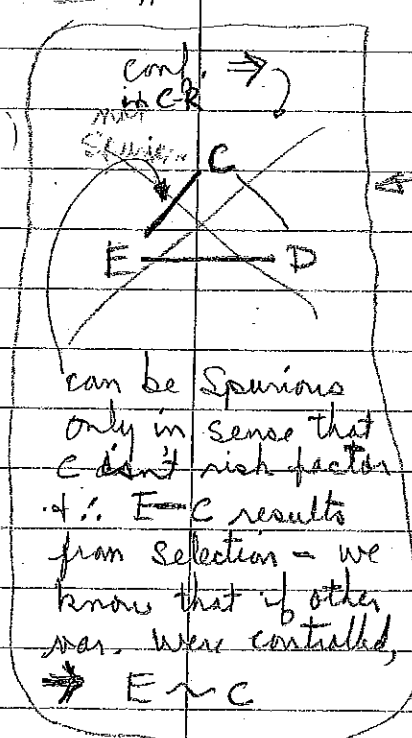 conf. ⇒
in C-R
not
C
E D
can be Spurious
only in sense that
C isn't risk factor
+ ∴ E–C results
from selection – we
know that if other
var. were controlled,
⇒ E ~ C